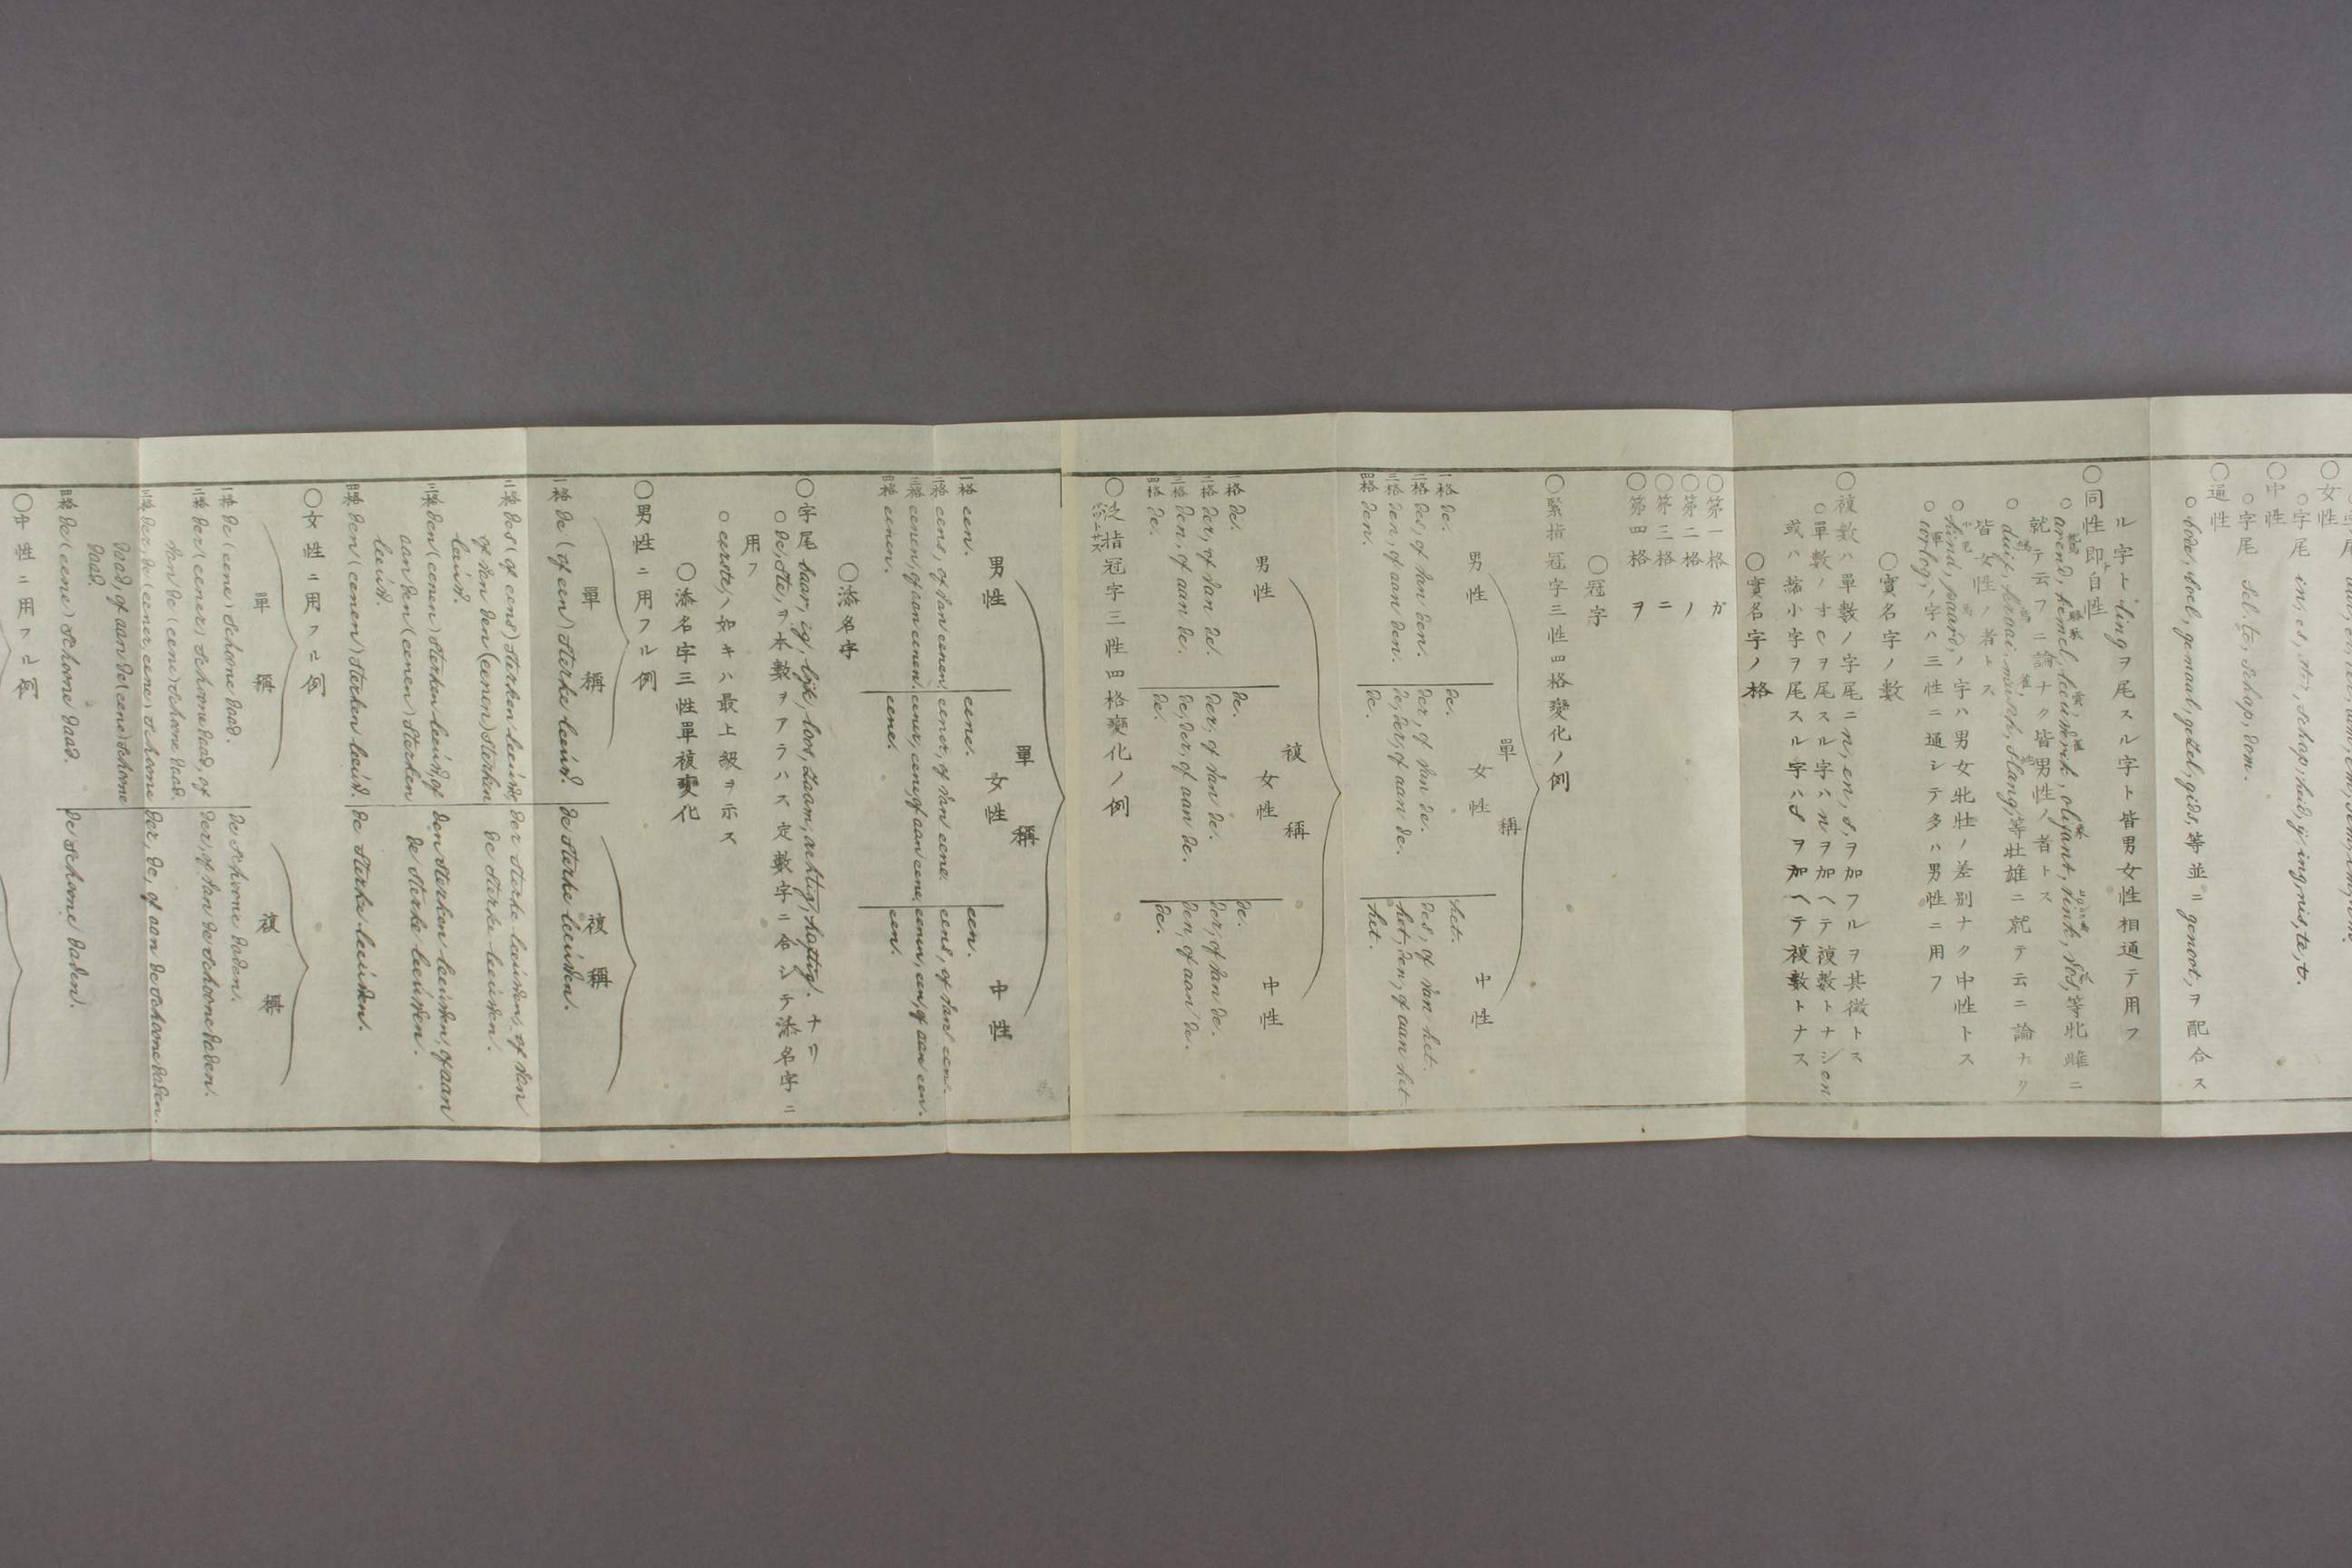 ○女性
○字尾 in, es, ster, schap, heid, ij, ing, nis, te, t.
○中性
○字尾 sel, te, schap, dom.
○通性
○bode, boel, gemaal, gezel, gids, 等並ニ genoot, ヲ配合ス
ル字ト ling ヲ尾スル字ト皆男女性相通テ用フ
○同性即自性
○arend, hemel, leeuwrik, olifant, vink, vos, 等牝雌ニ
就テ云フニ論ナク皆男性ノ者トス
○duif, kraai, musch, slang, 等壯雄ニ就テ云ニ論ナク
皆女性ノ者トス
○kind, paard, ノ字ハ男女牝壯ノ差別ナク中性トス
○oorlog, ノ字ハ三性ニ通シテ多ハ男性ニ用フ
○實名字ノ數
○複數ハ單數ノ字尾ニ n, en, s, ヲ加フルヲ其徴トス
○單數ノ オ e ヲ尾スル字ハ n ヲ加ヘテ複數トナシ en
或ハ縮小字ヲ尾スル字ハ s ヲ加ヘテ複數トナス
○實名字ノ格
○第一格 ガ
○第二格 ノ
○第三格 ニ
○第四格 ヲ
○冠字
○緊指冠字三性四格變化ノ例
單稱
男性 女性 中性
一格 de. de. het.
二格 des, of van den. der, of van de. des, of van het.
三格 den, of aan den. de, der, of aan de. het, den, of aan het.
四格 den. de. het.
複稱
男性 女性 中性
一格 de. de. de.
二格 der, of van de. der, of van de. der, of van de.
三格 den, of aan de. de, der, of aan de. den, of aan de.
四格 de. de. de.
○泛指冠字三性四格變化ノ例
單稱
男性 女性 中性
一格 een. eene. een.
二格 eens, of van eenen. eener, of van eene. eens, of van een.
三格 eenen, of aan eenen. eener, eene, of aan eene. eenen, een, of aan een.
四格 eenen. eene. een.
○添名字
○字尾 baar, ig, lijk, loos, zaam, achtig, haftig. ナリ
○de, ste, ヲ本數ヲアラハス定數字ニ合シテ添名字ニ
用フ
○eerste, ノ如キハ最上級ヲ示ス
○添名字三性單複變化
○男性ニ用フル例
單稱 複稱
一格 de (of een) sterke leeuw. de sterke leeuwen.
二格 des (of eens) sterken leeuws, der sterke leeuwen, of van
of van den (eenen) sterken de sterke leeuwen.
leeuw.
三格 den (eenen) sterken leeuw, of den sterken leeuwen, of aan
aan den (eenen) sterken de sterke leeuwen.
leeuw.
四格 den (eenen) sterken leeuw. de sterke leeuwen.
○女性ニ用フル例
單稱 複稱
一格 de (eene) schoone daad. de schoone daden.
二格 der (eener) schoone daad, of der, of van de schoone daden.
van de (eene) schoone daad.
三格 der, de (eener, eene) schoone der, de, of aan de schoone daden.
daad, of aan de (eene) schoone
daad.
四格 de (eene) schoone daad. de schoone daden.
○中性ニ用フル例